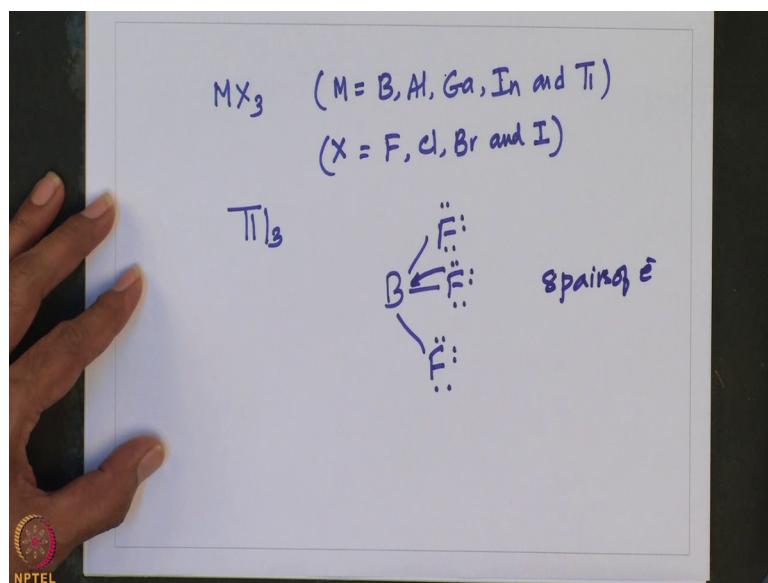 MX₃ (M = B, Al, Ga, In and Tl)
(X = F, Cl, Br and I)
TlI₃
F
B F 8 pairs of e⁻
F
NPTEL